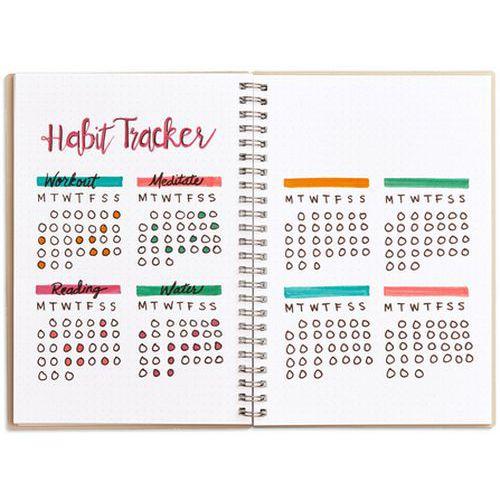 Habit Tracker
Workout
M T W T F S S
Meditate
M T W T F S S
Reading
M T W T F S S
Water
M T W T F S S
M T W T F S S
M T W T F S S
M T W T F S S
M T W T F S S